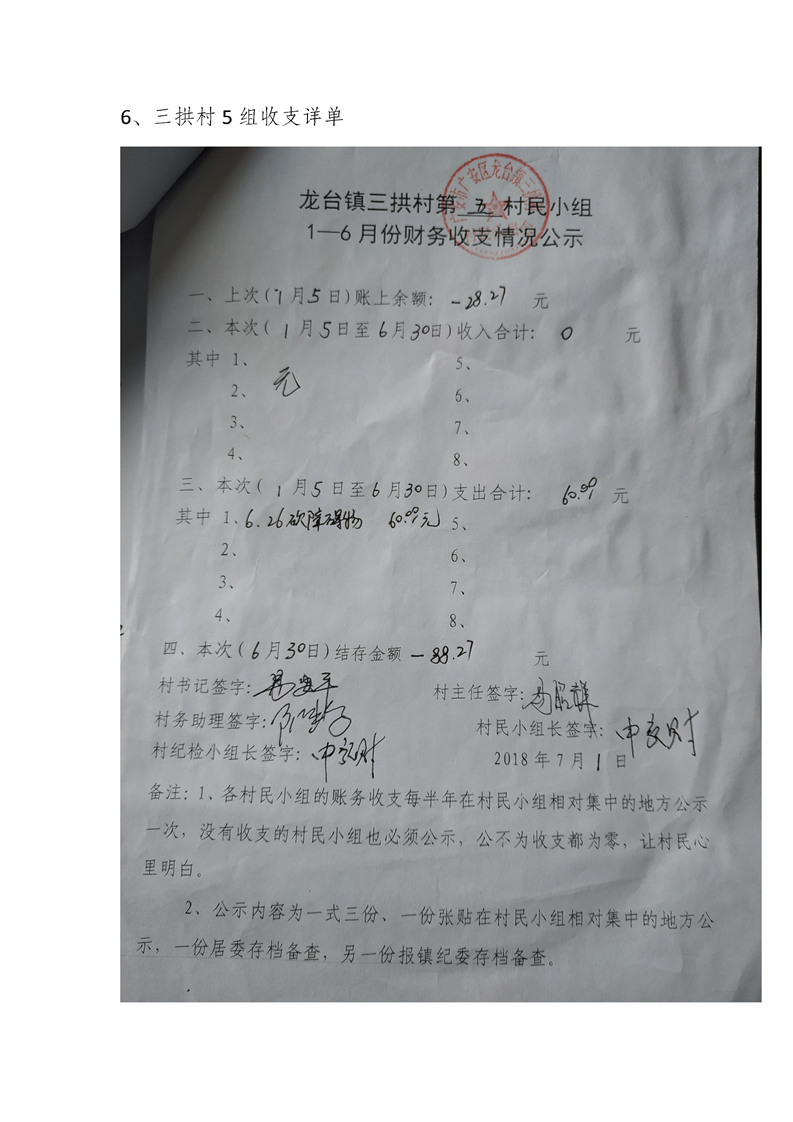 6、三拱村 5 组收支详单
龙台镇三拱村第 五 村民小组
1—6 月份财务收支情况公示
一、上次(1月5日)账上余额: -28.27 元
二、本次( 1月5日至6月30日)收入合计: 0 元
其中 1、 5、
2、 元 6、
3、 7、
4、 8、
三、本次( 1月5日至6月30日)支出合计: 60.00 元
其中 1、6.26砍障碍物 60.00元 5、
2、 6、
3、 7、
4、 8、
四、本次(6月30日)结存金额 -88.27 元
村书记签字: 村主任签字:
村务助理签字: 村民小组长签字:
村纪检小组长签字: 2018 年 7 月 1 日
备注: 1、各村民小组的账务收支每半年在村民小组相对集中的地方公示
一次，没有收支的村民小组也必须公示，公不为收支都为零，让村民心
里明白。
2、公示内容为一式三份、一份张贴在村民小组相对集中的地方公
示，一份居委存档备查，另一份报镇纪委存档备查。